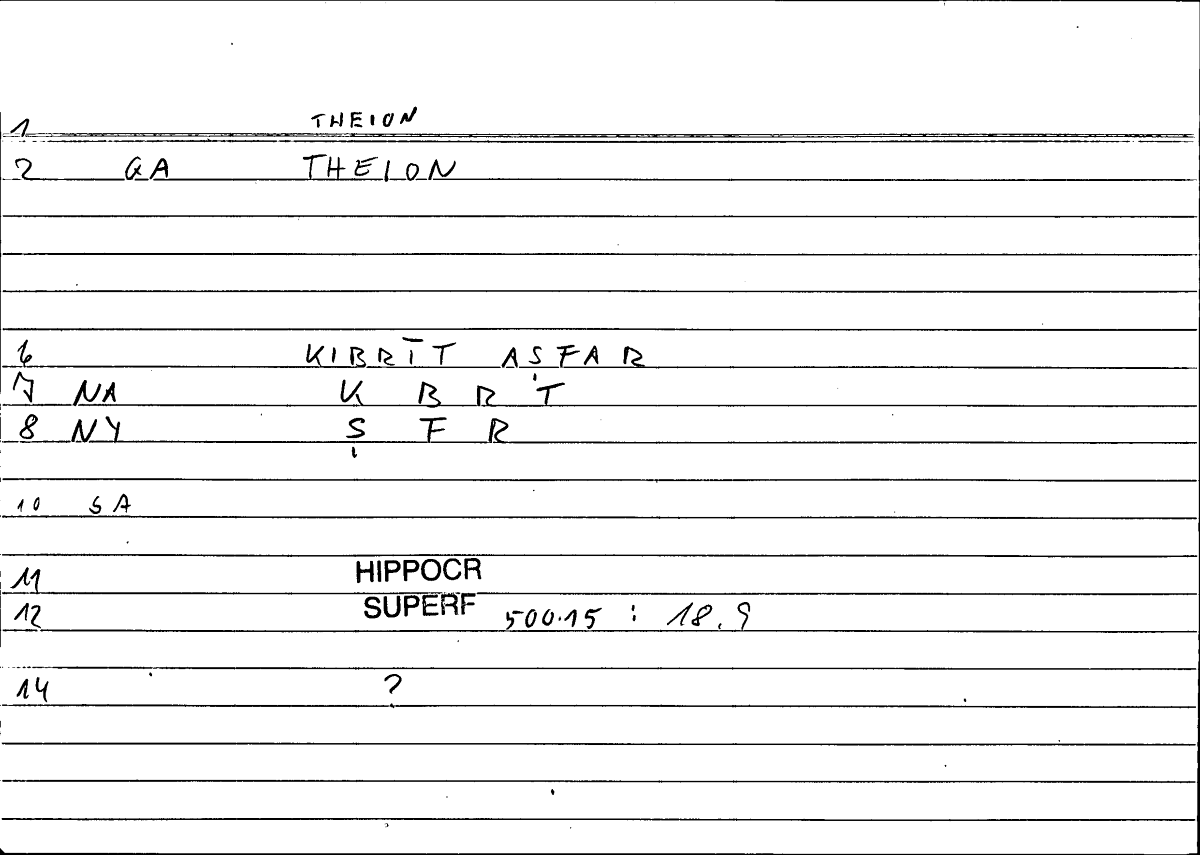 1 THEION
2 GA THEION
6 KIBRĪT ASFAR
7 NA K B R 'T
8 NY Ṣ F R
10 SA
11 HIPPOCR
12 SUPERF 500.15 : 18.9
14 ?